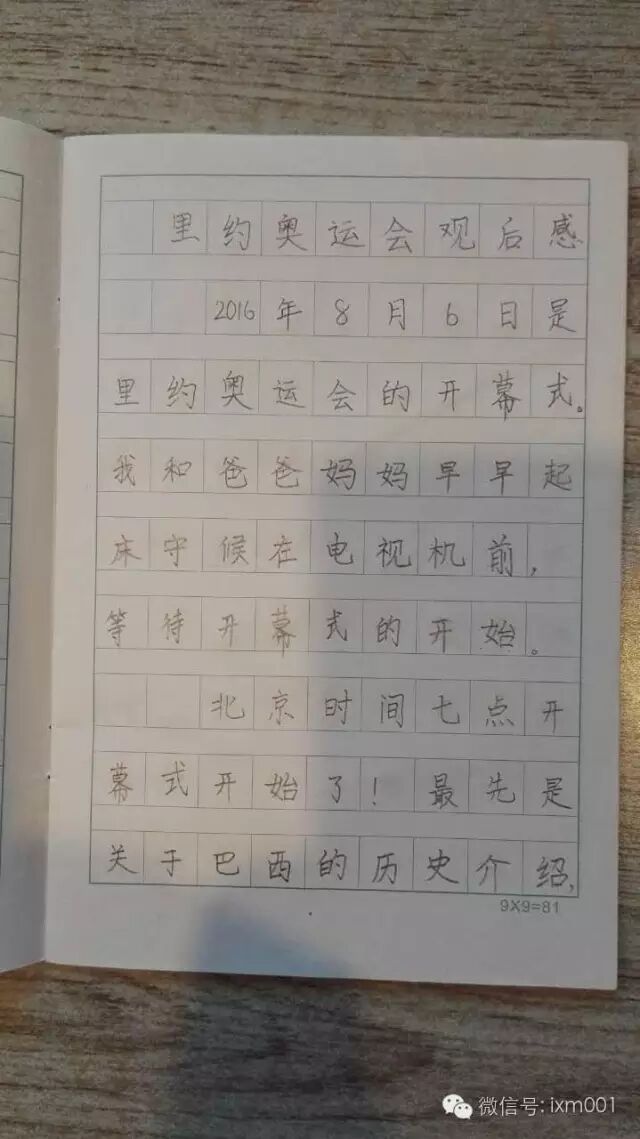 里约奥运会观后感
2016年8月6日是
里约奥运会的开幕式。
我和爸爸妈妈早早起
床守候在电视机前,
等待开幕式的开始。
北京时间七点开
幕式开始了!最先是
关于巴西的历史介绍,
9X9=81
微信号: ixm001